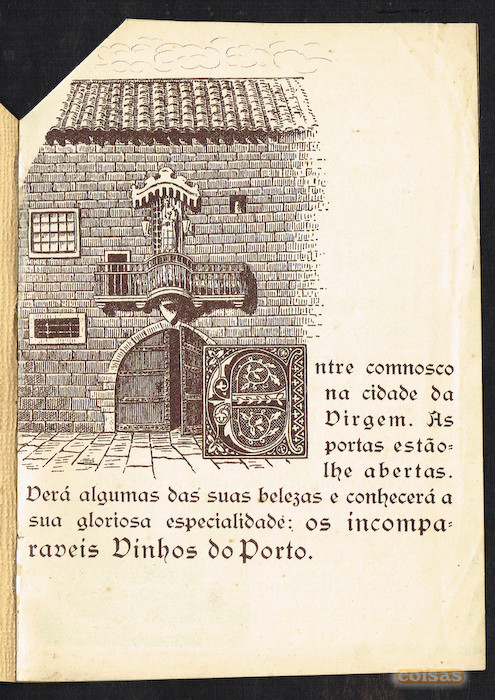 Entre comnosco
na cidade da
Virgem. As
portas estão-
lhe abertas.
Verá algumas das suas belezas e conhecerá a
sua gloriosa especialidade: os incompa-
raveis Vinhos do Porto.
coisas